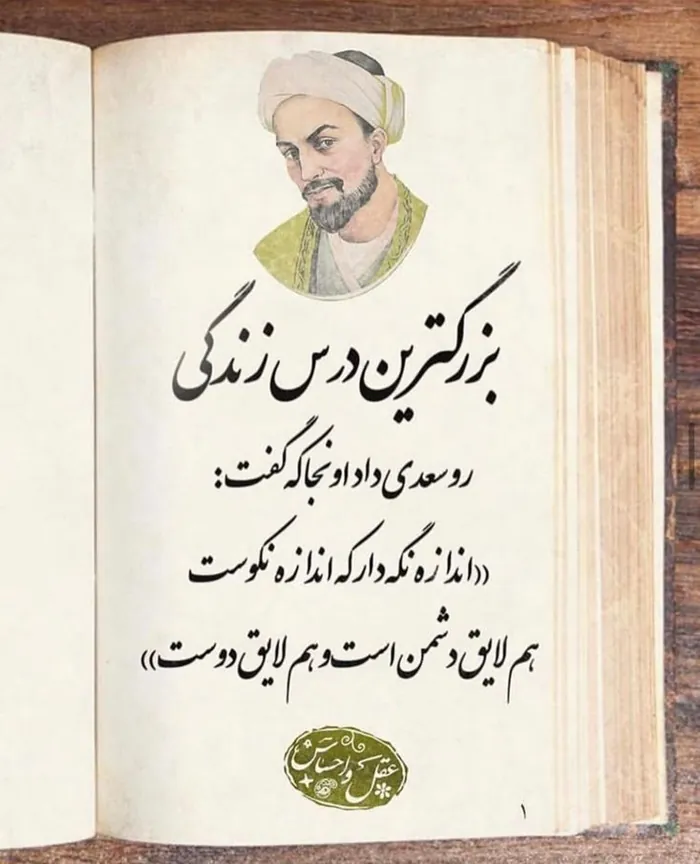 بزرگترین درس زندگی
رو سعدی داد اونجا که گفت:
((اندازه نگه دار که اندازه نکوست
هم لایق دشمن است و هم لایق دوست))
عقل و احساس
۱